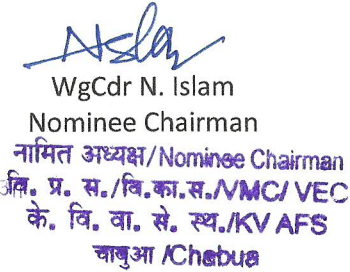 WgCdr N. Islam
Nominee Chairman
नामित अध्यक्ष/Nominee Chairman
वि. प्र. स./वि.का.स./VMC/ VEC
के. वि. वा. से. स्थ./KV AFS
चाबुआ /Chabua